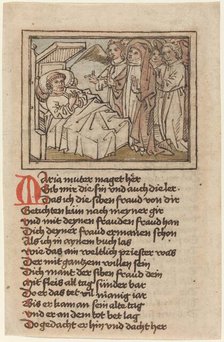 Maria muter maget her
Gib mir die sin und auch die ler.
Das ich die siben fraud von dir
Getichten kun nach meyner gir
Und mit deynen frauden fraud han
Dich deyner fraud ermanen schon
Als ich in aynem buch las
Wie das ain weltlich priester was
Der mit gantzem willen sein
Dich mant der siben fraud dein
Mit fleis all tag sunder bar
Er das tet vil manig iar
Bis er kam an sein alte tag
Und er an dem tot bet lag
Do gedacht er hin und dacht her